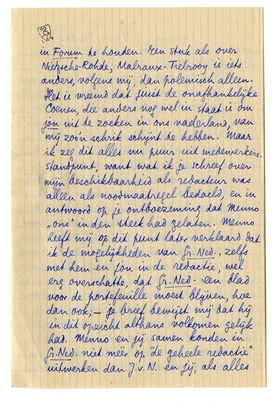 in Forum te houden. Een stuk als over
Nietzsche-Rohde, Malraux-Tielrooy is iets
anders, volgens mij, dan polemisch alleen.
Het is vreemd dat juist de onafhankelijke
Coenen, die anders nog wel in staat is om
jou uit te zoeken in ons vaderland, van
mij zoo'n schrik schijnt te hebben. Maar
ik zeg dit alles nu puur uit medewerkers-
standpunt, want wat ik je schreef over
mijn beschikbaarheid als redacteur was
alleen als noodmaatregel bedoeld, en in
antwoord op je ontboezeming dat Menno
„ons" in den steek had gelaten. Menno
heeft mij op dit punt later verklaard dat
ik de mogelijkheden van Gr. Ned., zelfs
met hem en jou in de redactie, wel
erg overschatte, dat Gr. Ned. een blad
voor de portefeuille moest blijven, hoe
dan ook, — je brief bewijst mij dat hij
in dit opzicht althans volkomen gelijk
had. Menno en jij samen konden in
Gr. Ned. niet méér op "de geheele redactie"
uitwerken dan J. v. N. en jij, als alles